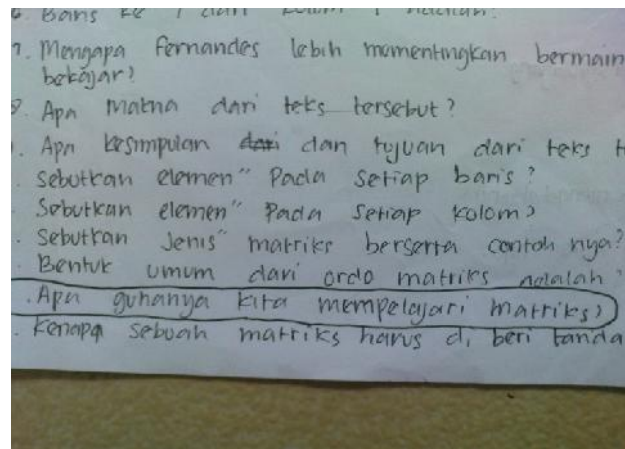 6. Baris ke 1 dari kolom 1 adalah:
7. Mengapa Fernandes lebih mementingkan bermain
bekajar?
8. Apa makna dari teks tersebut?
. Apa kesimpulan dari dan tujuan dari teks t
. Sebutkan elemen" Pada setiap baris?
. Sebutkan elemen" Pada Setiap kolom?
. Sebutkan Jenis" matriks berserta contoh nya?
. Bentuk umum dari ordo matriks adalah
. Apa guhanya kita mempelajari matriks?
. Kenapa sebuah matriks harus di beri tanda